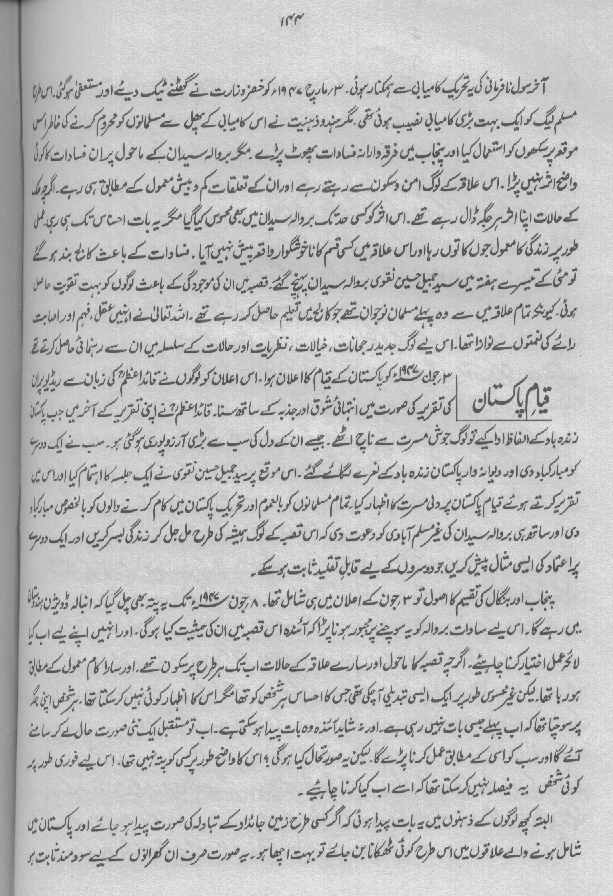 ۱۴۴
آخر سول نافرمانی کی یہ تحریک کامیابی سے ہمکنار ہوئی۔ ۳؍ مارچ ۱۹۴۷ء کو خضر وزارت نے گھٹنے ٹیک دیئے اور مستعفی ہو گئی۔ اس طرح
مسلم لیگ کو ایک بہت بڑی کامیابی نصیب ہوئی تھی۔ مگر ہندو ذہنیت نے اس کامیابی کے پھل سے مسلمانوں کو محروم کرنے کی خاطر اس
موقعہ پر سکھوں کو استعمال کیا اور پنجاب میں فرقہ وارانہ فسادات پھوٹ پڑے۔ مگر بروالہ سیدان کے ماحول پر ان فسادات کا کوئی
واضح اثر نہیں پڑا۔ اس علاقہ کے لوگ امن و سکون سے رہتے رہے اور ان کے تعلقات کم و بیش معمول کے مطابق ہی رہے۔ اگرچہ ملک
کے حالات اپنا اثر ہر جگہ ڈال رہے تھے۔ اس اثر کو کسی حد تک بروالہ سیدان میں بھی محسوس کیا گیا مگر یہ بات احساس تک ہی رہی۔ عملی
طور پر زندگی کا معمول جوں کا توں رہا اور اس علاقہ میں کسی قسم کا ناخوشگوار واقعہ پیش نہیں آیا۔ فسادات کے باعث کالج بند ہو گئے
تو مئی کے تیسرے ہفتہ میں سید جمیل حسین نقوی بروالہ سیدان پہنچ گئے۔ قصبہ میں ان کی موجودگی کے باعث لوگوں کو بہت تقویت حاصل
ہوئی۔ کیونکہ تمام علاقہ میں سے وہ پہلے مسلمان نوجوان تھے جو کالج میں تعلیم حاصل کر رہے تھے۔ اللہ تعالیٰ نے انہیں عقل، فہم اور اصابت
رائے کی نعمتوں سے نوازا تھا۔ اس لیے لوگ جدید رجحانات، خیالات، نظریات اور حالات کے سلسلہ میں ان سے رہنمائی حاصل کرتے تھے
قیامِ پاکستان
۳؍ جون ۱۹۴۷ء کو پاکستان کے قیام کا اعلان ہوا۔ اس اعلان کو لوگوں نے قائد اعظمؒ کی زبان سے ریڈیو پر ان
کی تقریر کی صورت میں انتہائی شوق اور جذبہ کے ساتھ سنا۔ قائد اعظمؒ نے اپنی تقریر کے آخر میں جب پاکستان
زندہ باد کے الفاظ ادا کیے تو لوگ جوش مسرت سے ناچ اٹھے۔ جیسے ان کے دل کی سب سے بڑی آرزو پوری ہو گئی ہو۔ سب نے ایک دوسرے
کو مبارکباد دی اور دیوانہ وار پاکستان زندہ باد کے نعرے لگائے گئے۔ اس موقع پر سید جمیل حسین نقوی نے ایک جلسہ کا اہتمام کیا اور اس میں
تقریر کرتے ہوئے قیام پاکستان پر دلی مسرت کا اظہار کیا۔ تمام مسلمانوں کو بالعموم اور تحریک پاکستان میں کام کرنے والوں کو بالخصوص مبارکباد
دی اور ساتھ ہی بروالہ سیدان کی غیر مسلم آبادی کو دعوت دی کہ اس قصبہ کے لوگ ہمیشہ کی طرح مل جل کر زندگی بسر کریں اور ایک دوسرے
پر اعتماد کی ایسی مثال پیش کریں جو دوسروں کے لیے قابل تقلید ثابت ہو سکے۔
پنجاب اور بنگال کی تقسیم کا اصول تو ۳ جون کے اعلان میں ہی شامل تھا۔ ۸ جون ۱۹۴۷ء تک یہ پتہ بھی چل گیا کہ انبالہ ڈویژن ہندوستان
میں رہے گا۔ اس لیے سادات بروالہ کو یہ سوچنے پر مجبور ہونا پڑا کہ آئندہ اس قصبہ میں ان کی حیثیت کیا ہوگی۔ اور انہیں اپنے لیے اب کیا
لائحہ عمل اختیار کرنا چاہیئے۔ اگرچہ قصبہ کا ماحول اور سارے علاقہ کے حالات اب تک ہر طرح پر سکون تھے۔ اور سارا کام معمول کے مطابق
ہو رہا تھا۔ لیکن غیر محسوس طور پر ایک ایسی تبدیلی آ چکی تھی جس کا احساس ہر شخص کو تھا مگر اس کا اظہار کوئی نہیں کر سکتا تھا۔ ہر شخص اپنی جگہ
پر سوچتا تھا کہ اب پہلے جیسی بات نہیں رہی ہے۔ اور نہ شاید آئندہ وہ بات پیدا ہو سکتی ہے۔ اب تو مستقبل ایک نئی صورت حال لے کر سامنے
آئے گا اور سب کو اسی کے مطابق عمل کرنا پڑے گا۔ لیکن یہ صورتحال کیا ہوگی؟ اس کا واضح طور پر کسی کو پتہ نہیں تھا۔ اس لیے فوری طور پر
کوئی شخص یہ فیصلہ نہیں کر سکتا تھا کہ اسے اب کیا کرنا چاہیئے۔
البتہ کچھ لوگوں کے ذہنوں میں یہ بات پیدا ہوئی کہ اگر کسی طرح زمین جائداد کے تبادلہ کی صورت پیدا ہو جائے اور پاکستان میں
شامل ہونے والے علاقوں میں اس طرح کوئی ٹھکانا بن جائے تو بہت اچھا ہو۔ یہ صورت صرف ان گھرانوں کے لیے سود مند ثابت ہو